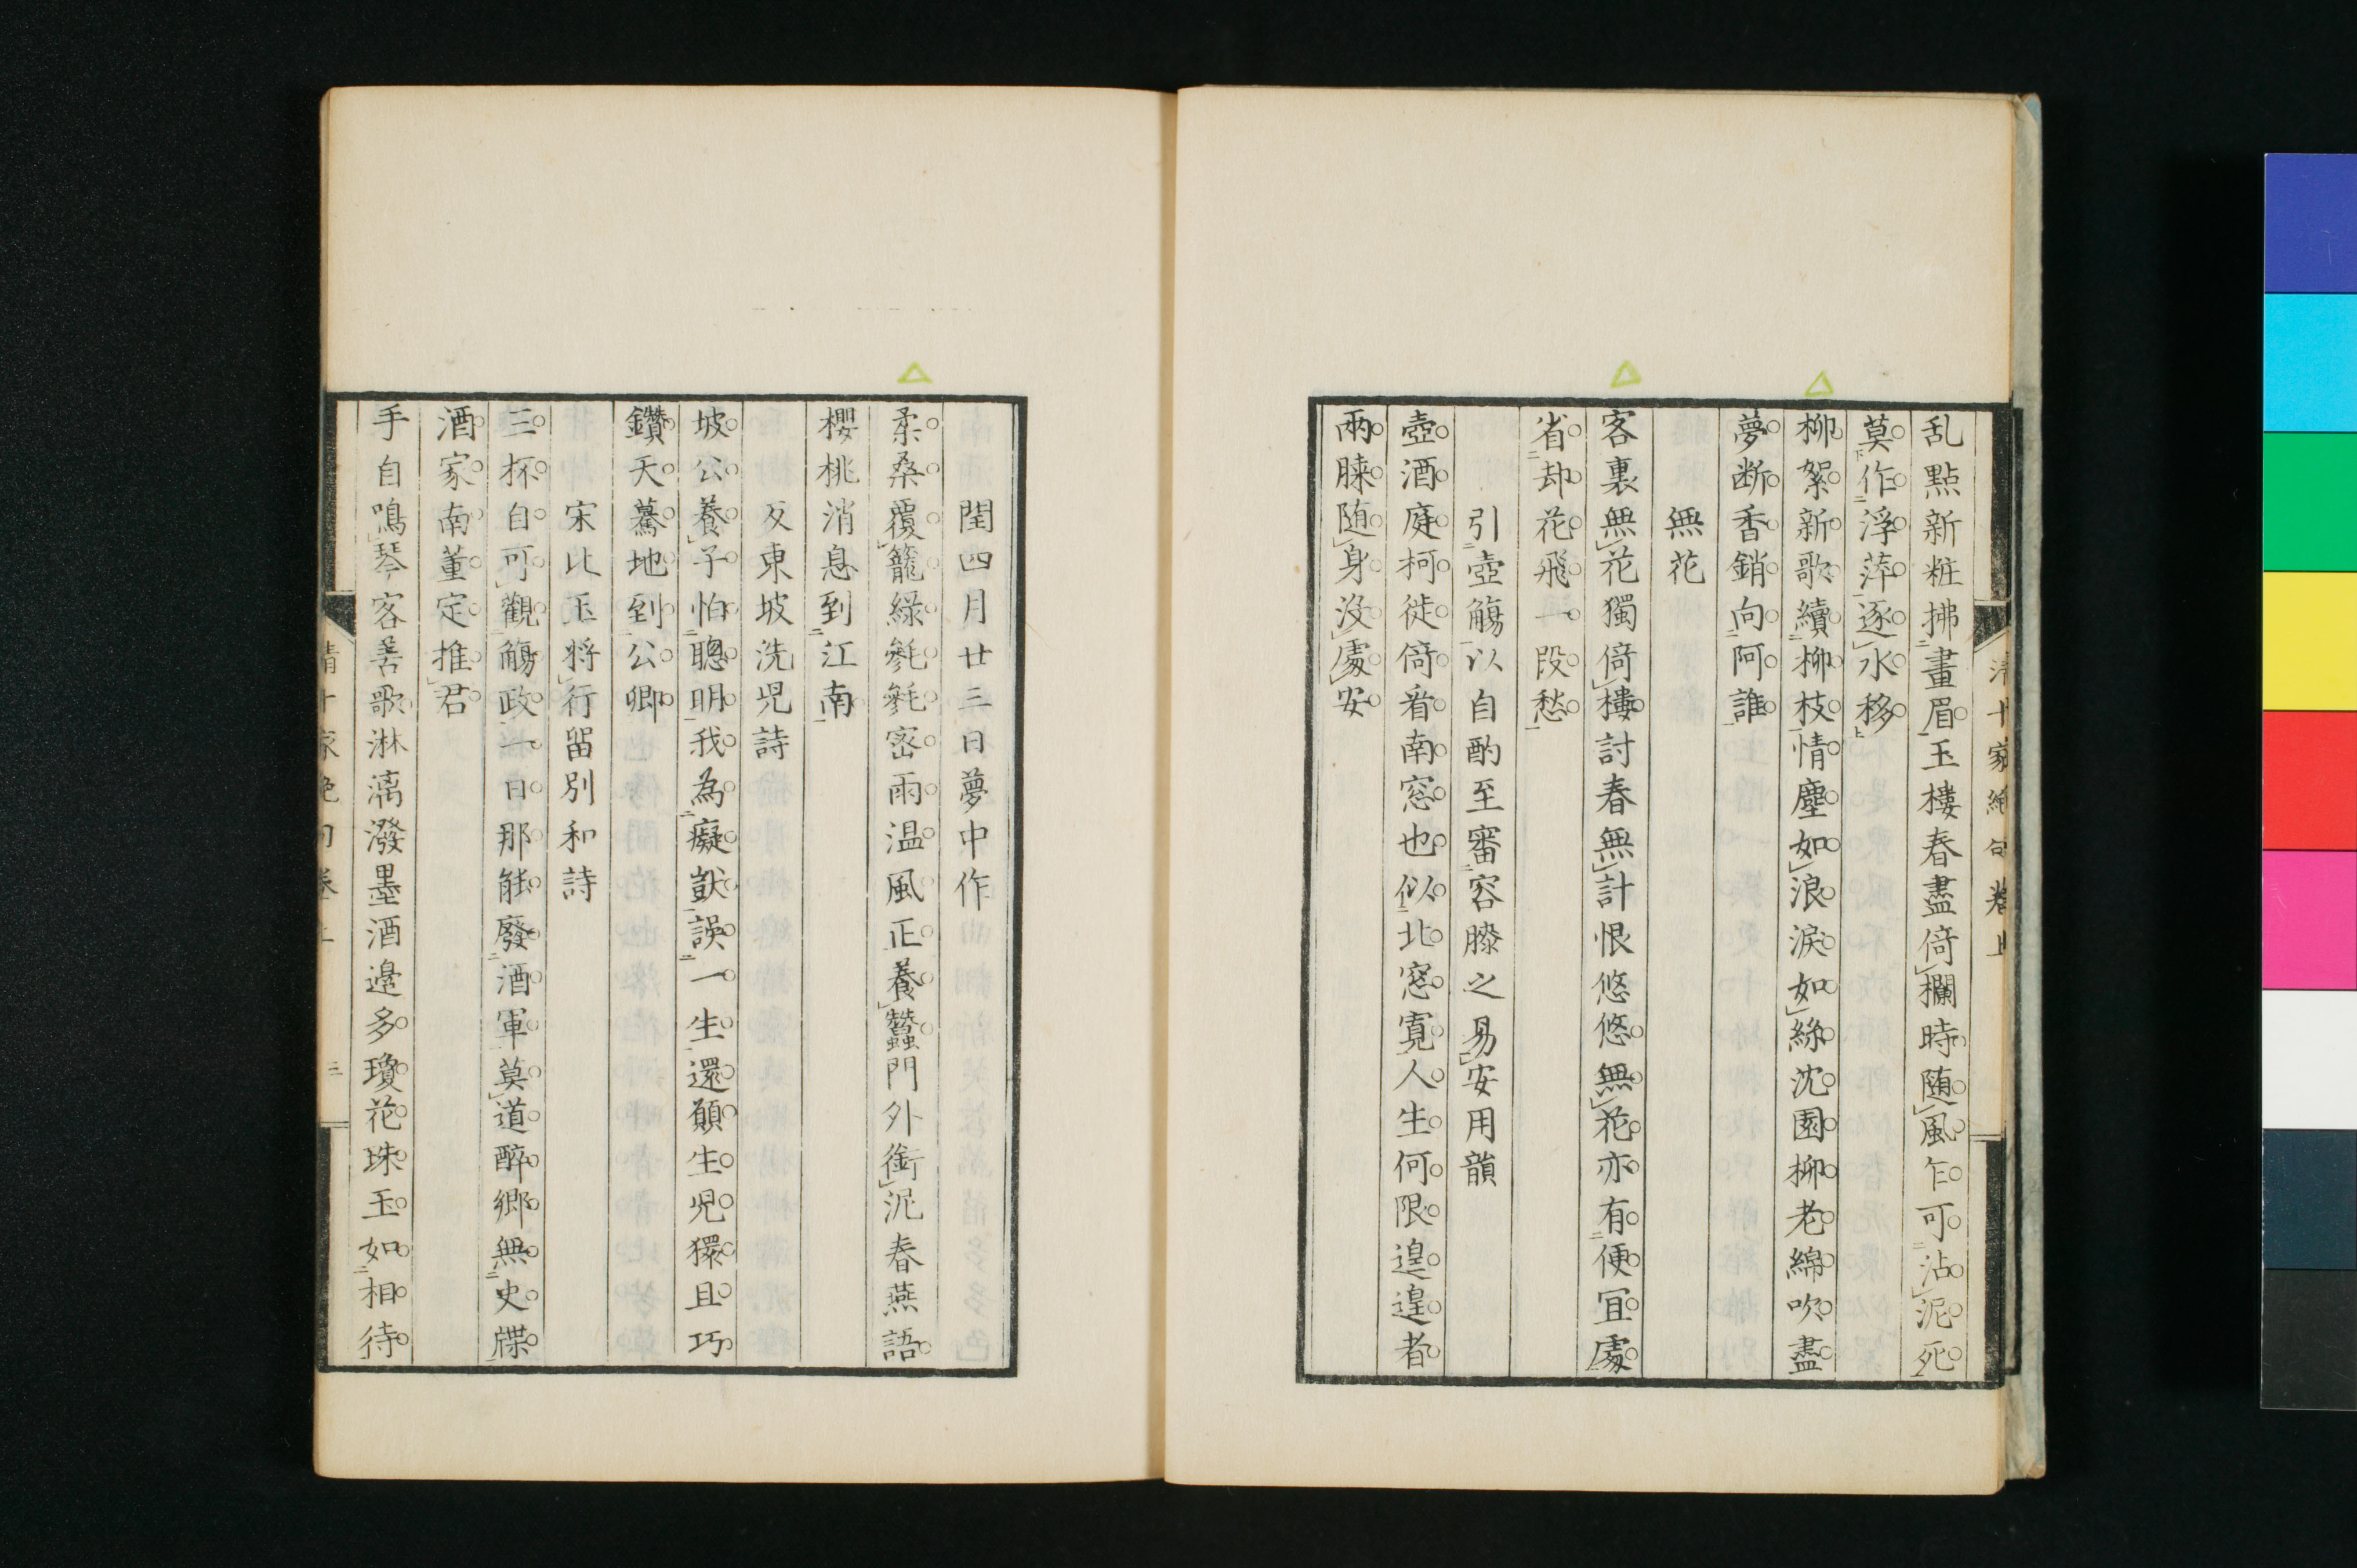 清十家絶句卷上
乱點新粧拂畫眉玉樓春盡倚欄時随風乍可沾泥死
莫作浮萍逐水移
柳絮新歌續柳枝情塵如浪淚如絲沈園柳老綿吹盡
夢断香銷向阿誰
無花
客裏無花獨倚樓討春無計恨悠悠無花亦有便冝處
省却花飛一段愁
引壺觴以自酌至審容膝之易安用韻
壺酒庭柯徙倚看南窓也似北窓寛人生何限遑遑者
兩膝随身没處安
閏四月廿三日夢中作
柔桑覆籠綠毿毿密雨温風正養蠶門外銜泥春燕語
櫻桃消息到江南
反東坡洗児詩
坡公養子怕聰明我為癡獃誤一生還願生児獧且巧
鑽天驀地到公卿
宋比玉将行留別和詩
三杯自可觀觴政一日那能廢酒軍莫道醉鄉無史牒
酒家南董定推君
手自鳴琴客善歌淋漓潑墨酒邊多瓊花珠玉如相待
清十家絶句卷上
三